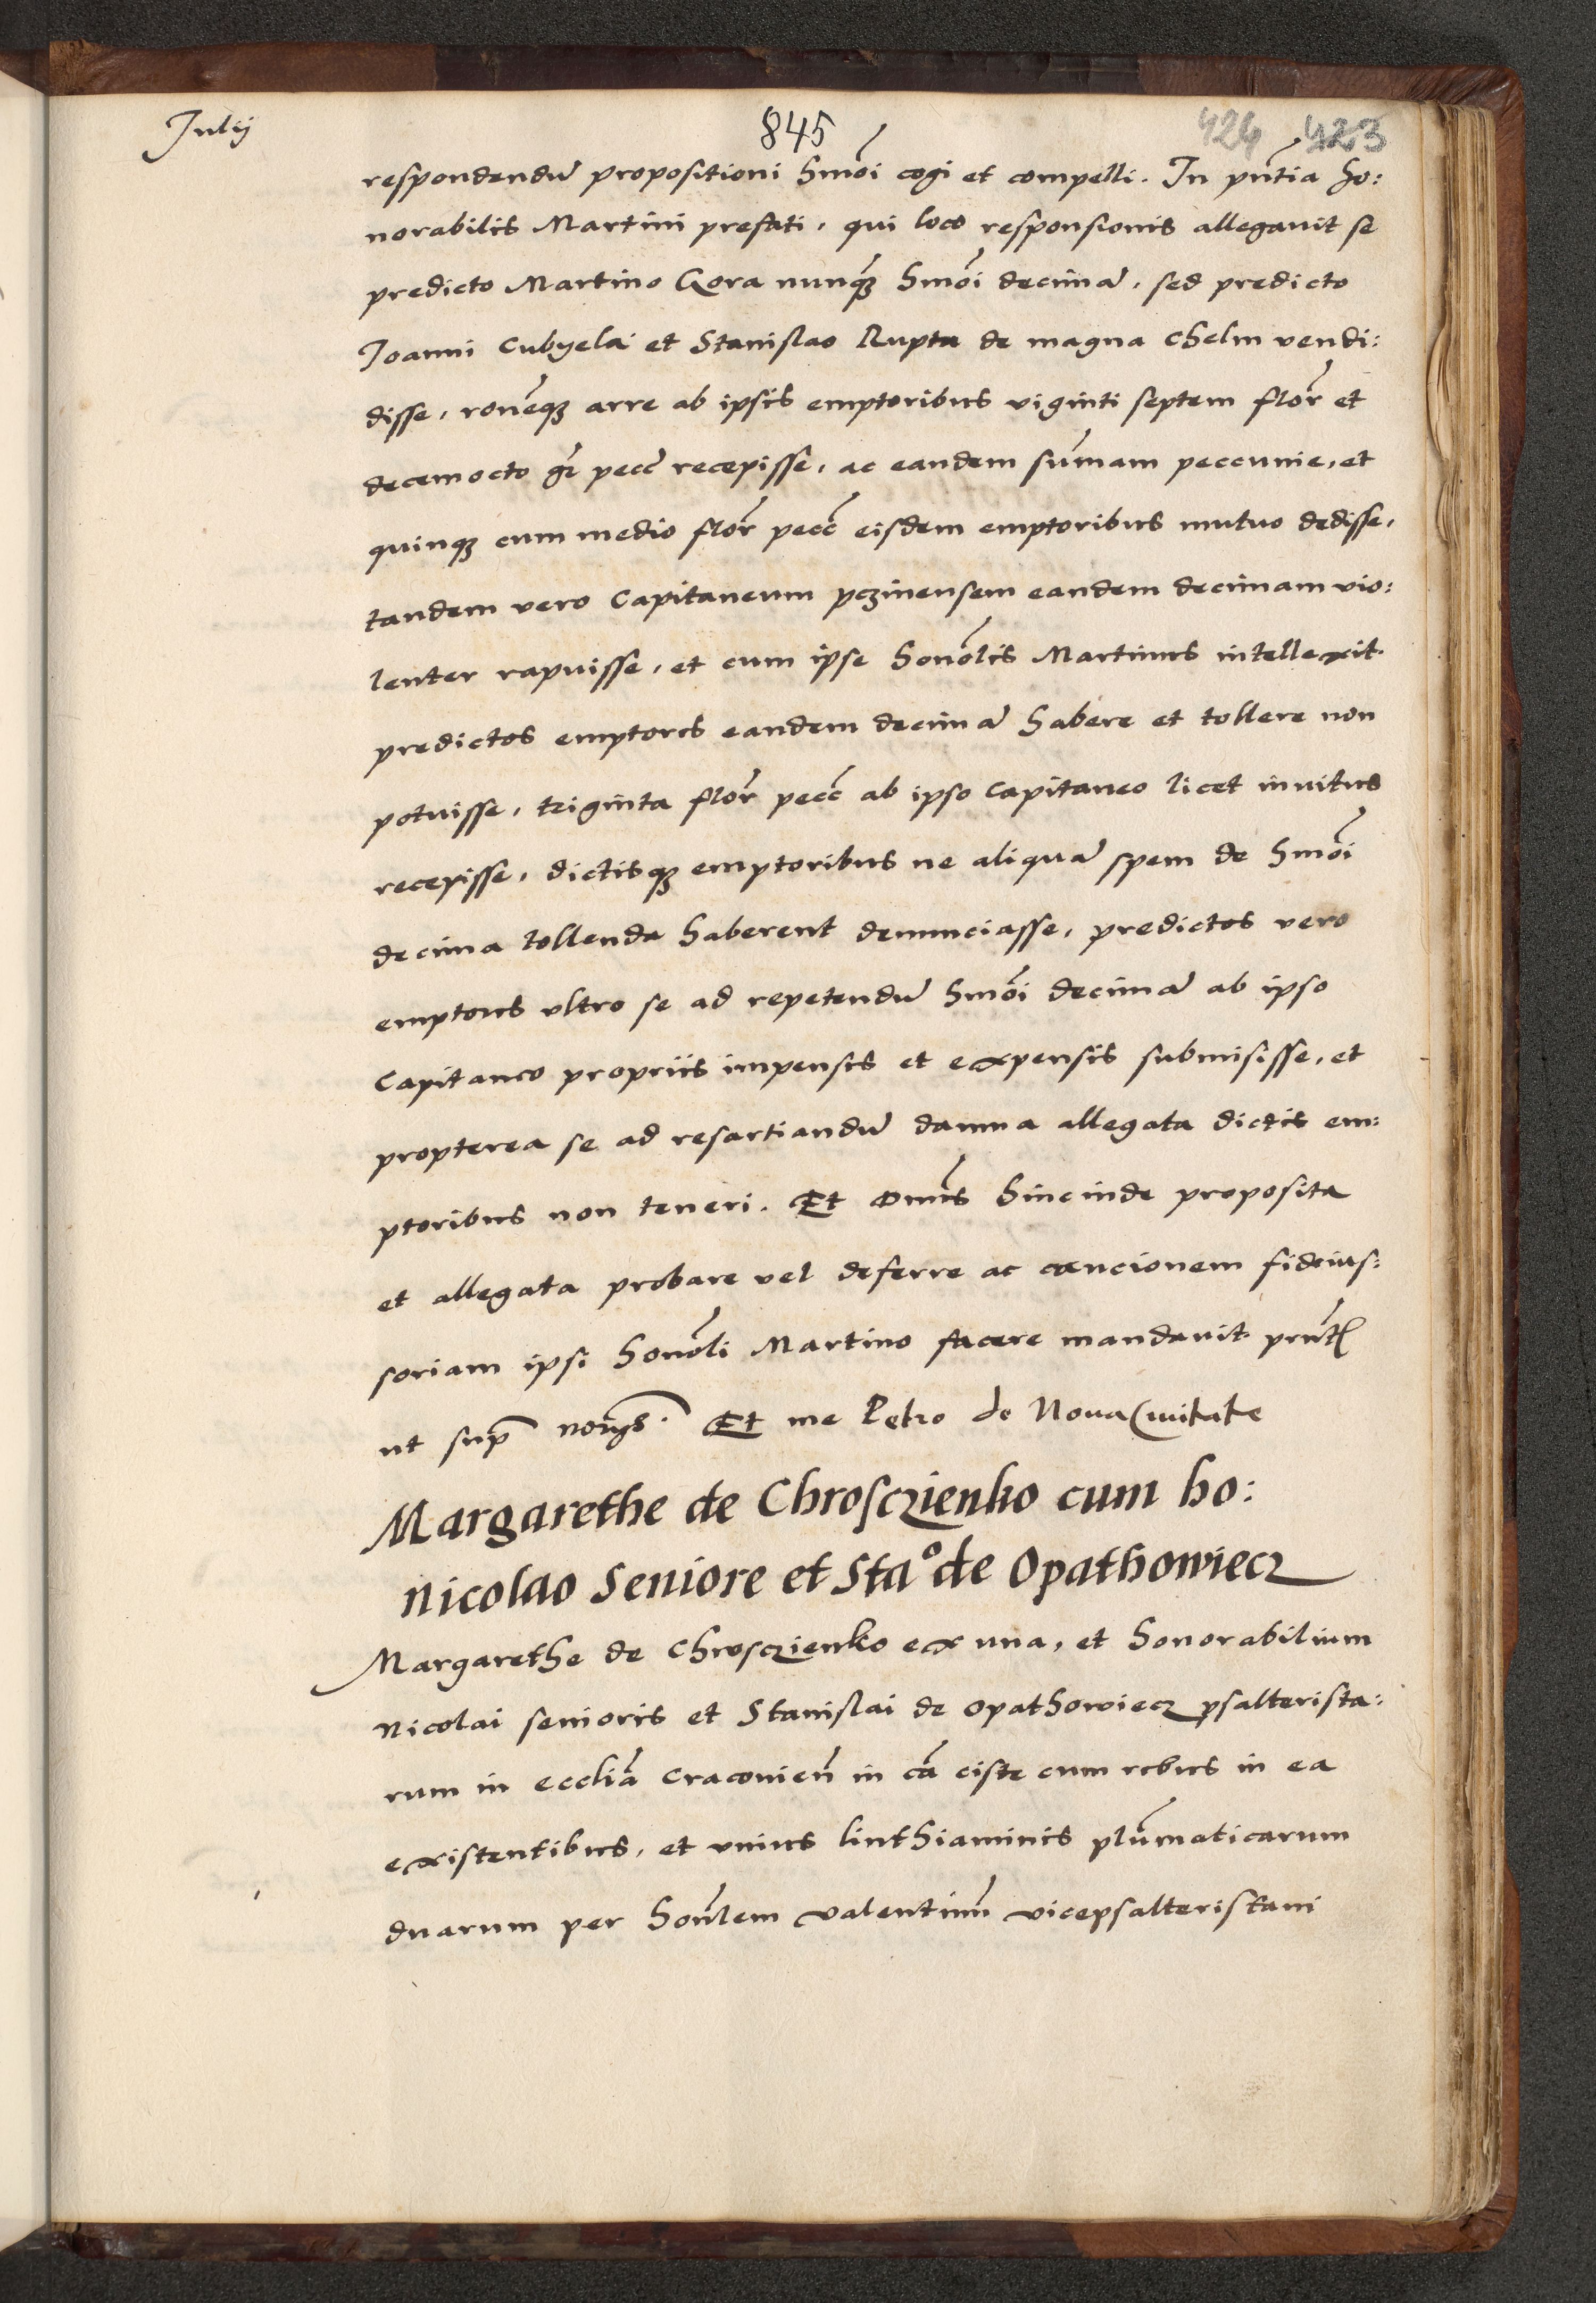 Julij
845
424 423
respondendũ propositioni hmõi cogi et compelli. In pñtia ho:
norabilis Martini prefati, qui loco responsionis allegauit se
predicto Martino Gora nunq̃ hmõi decimã, sed predicto
Joanni Cubyela et Stanislao Rupta de magna Chelm vendi:
disse, rõneq̃ arre ab ipsis emptoribus viginti septem flor̃ et
decemocto gr̃ pecc̃ recepisse, ac eandem sum̃am peccunie, et
quinq̃ cum medio flor̃ pecc̃ eisdem emptoribus mutuo dedisse,
tandem vero Capitaneum pczinensem eandem decimam vio:
lenter rapuisse, et cum ipse honõlis Martinus intellexit
predictos emptores eandem decimã habere et tollere non
potuisse, triginta flor̃ pecc̃ ab ipso Capitaneo licet inuitus
recepisse, dictisq̃ emptoribus ne aliquã spem de hmõi
decima tollenda haberent denunciasse, predictos vero
emptores vltro se ad repetendũ hmõi decimã ab ipso
Capitaneo propriis impensis et expensis submisisse, et
propterea se ad resartiandũ damna allegata dictis em:
ptoribus non teneri. Et Dnus hincinde proposita
et allegata probare vel deferre ac caucionem fideius:
soriam ipsi honõli Martino facere mandauit pñt
ut sup̃ norijs. Et me Petro de Noua Ciuitate
Margarethe de Chrosczienko cum ho:
Nicolao Seniore et Sta° de Opathowiecz
Margarethe de Chrosczienko ex una, et honorabilium
Nicolai senioris et Stanislai de Opathowiecz psalterista:
rum in eccliã Craconieñ in cã ciste cum rebus in ea
existentibus, et vnius linthiaminis plum̃aticarum
duarum per honl̃em Valentinũ vicepsalteristam